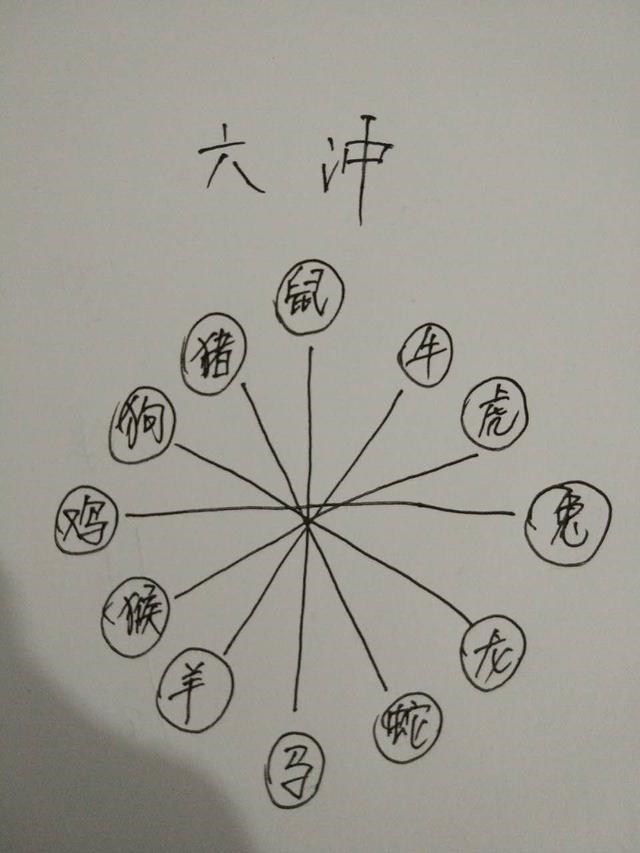 六冲
鼠
牛
虎
兔
龙
蛇
马
羊
猴
鸡
狗
猪